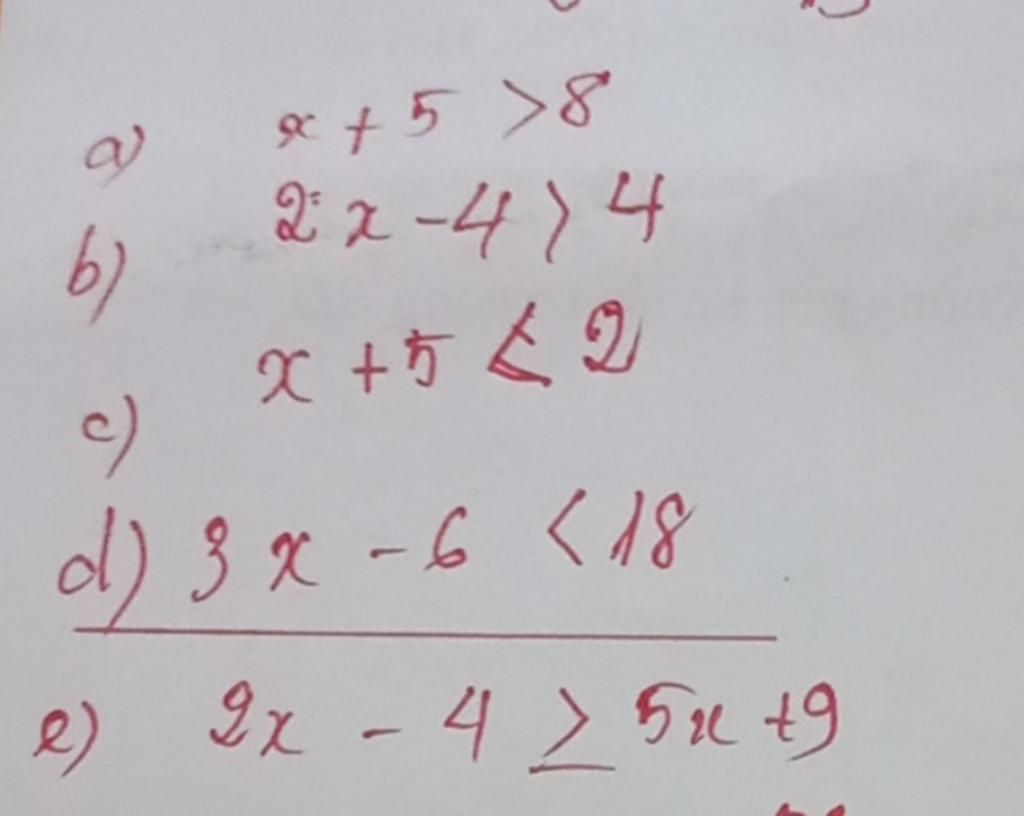 a) x + 5 > 8
b) 2x - 4 > 4
c) x + 5 ≤ 2
d) 3x - 6 < 18
e) 2x - 4 ≥ 5x + 9